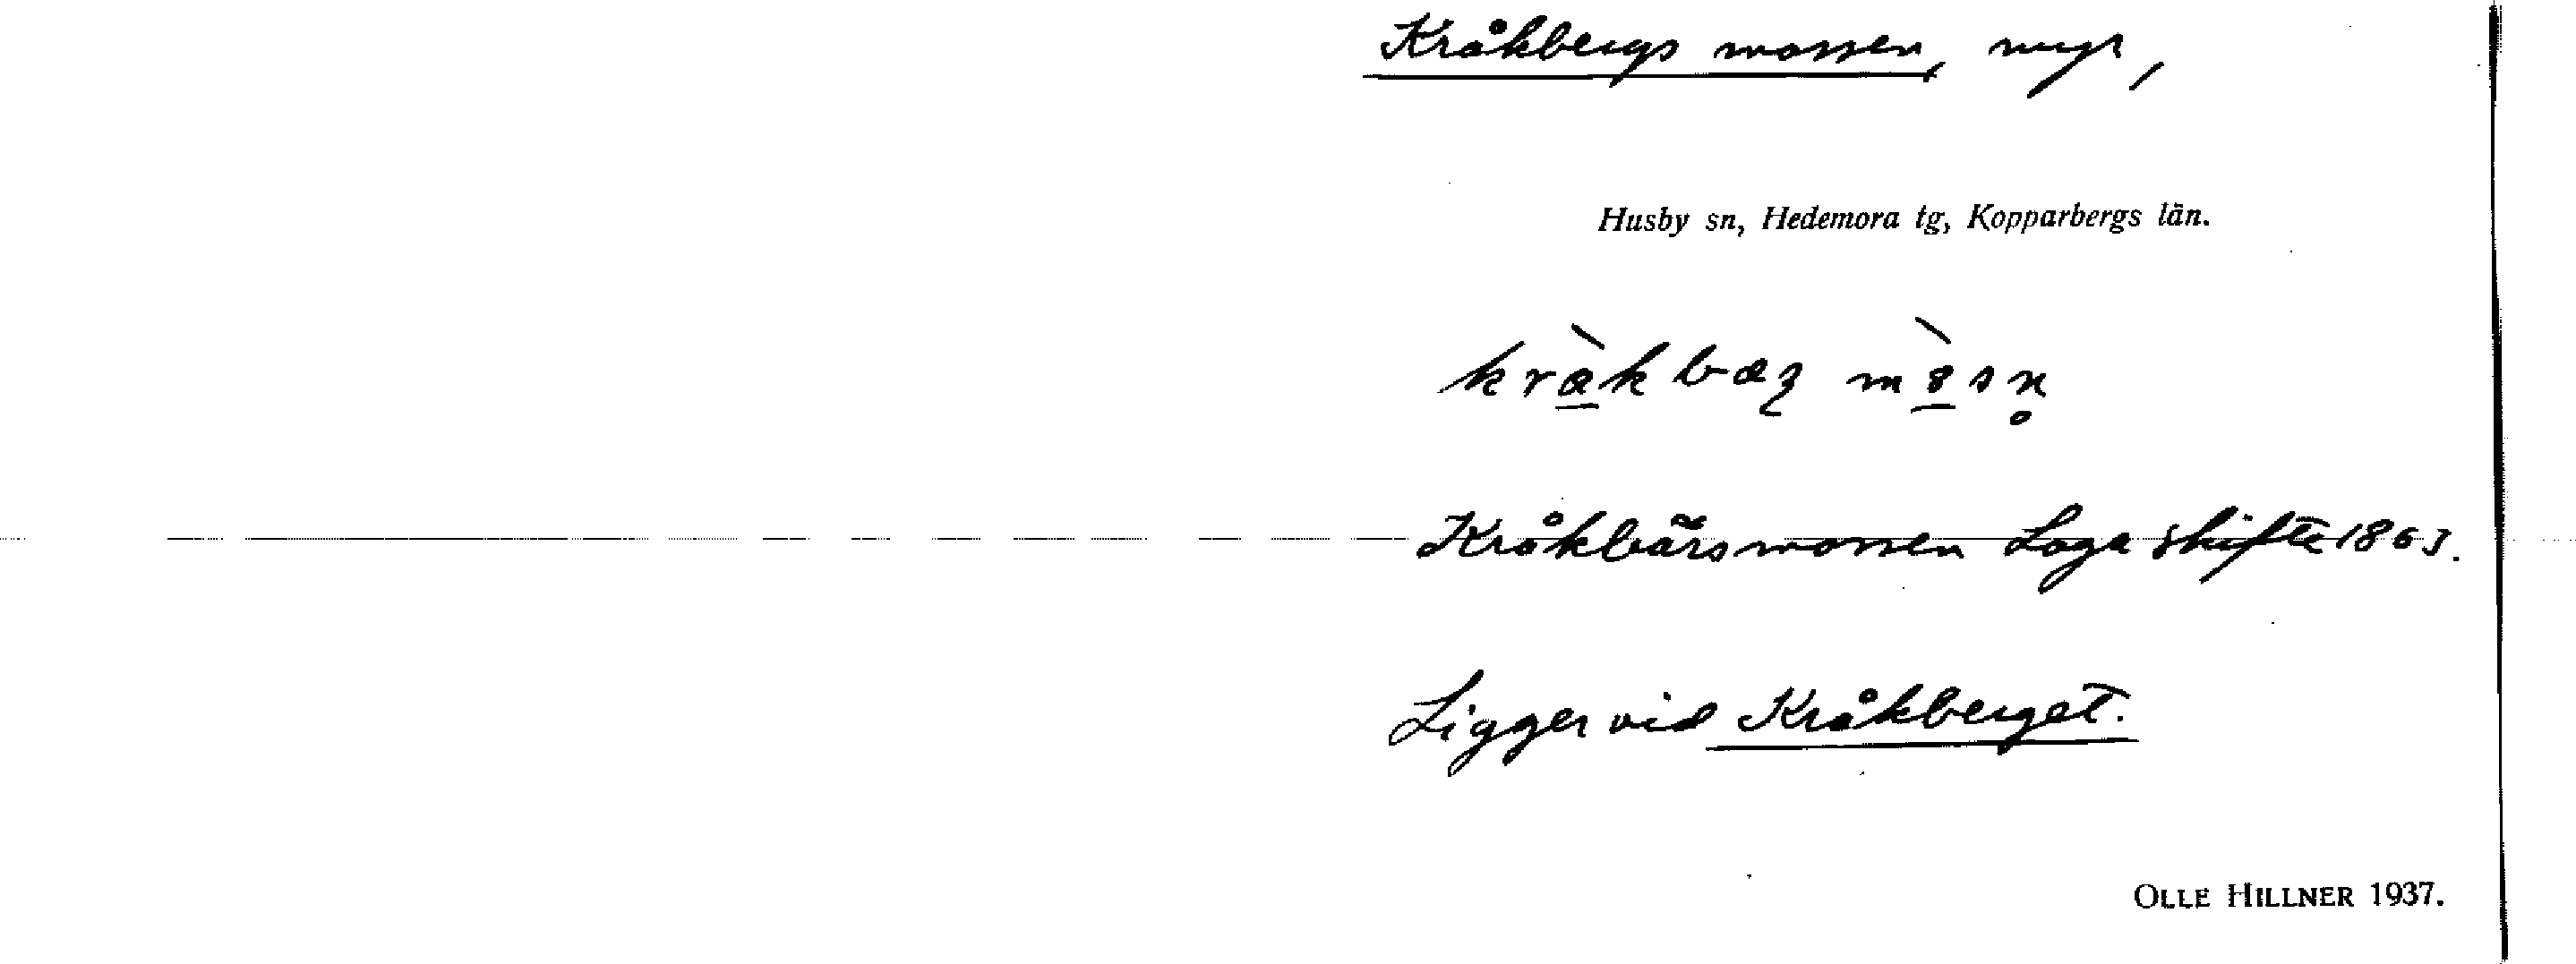 Kråkbergs mossen, myr,
Husby sn, Hedemora tg, Kopparbergs län.
Kråkbärsmossen Loga skifte 1863.
Ligger vid Kråkberget.
OLLE HILLNER 1937.